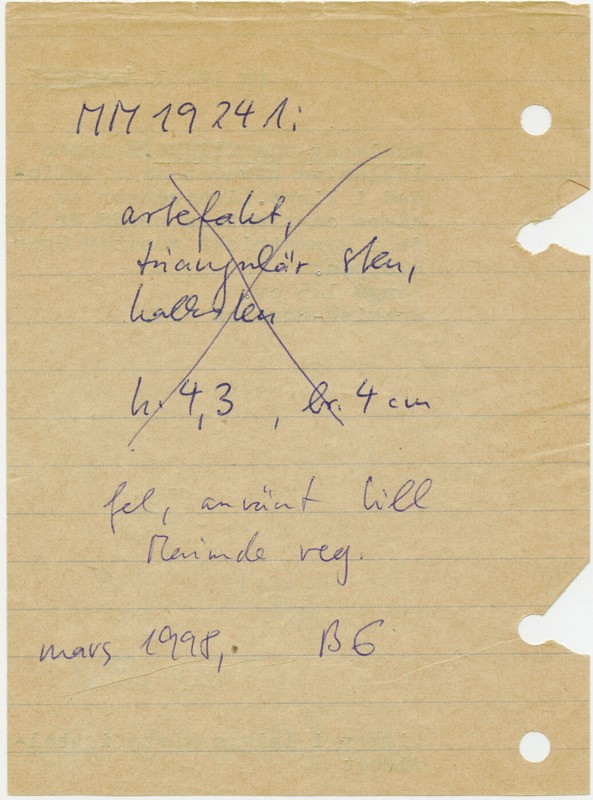 MM 19 241:
artefakt,
triangulär sten,
kalksten
h. 4,3 , br. 4 cm
fel, använt till
Merimde reg.
mars 1998, BG